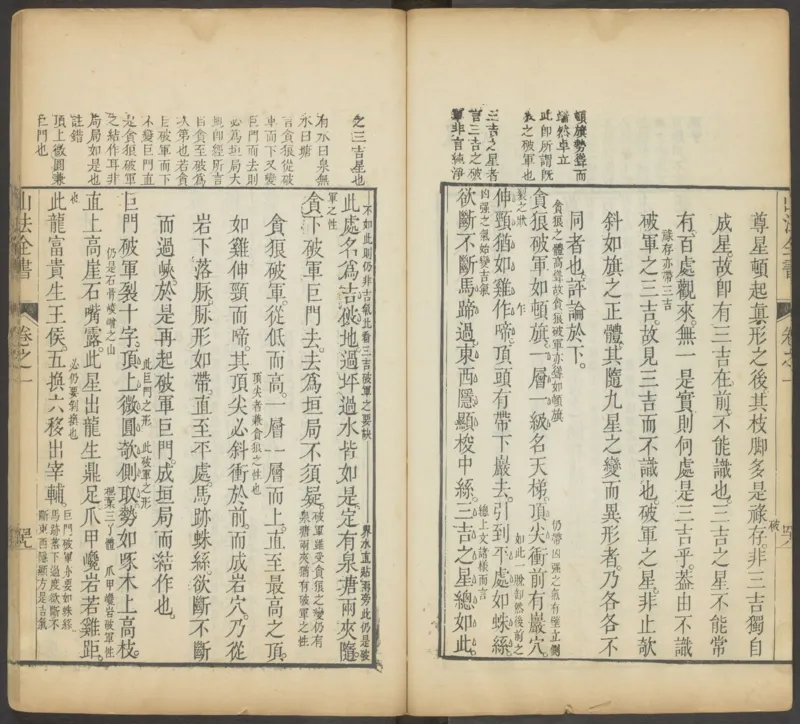 尊星頓起真形之後其枝脚多是祿存非三吉獨自
破
成星故卽有三吉在前不能識也三吉之星不能常
有百處觀來無一是實則何處是三吉乎葢由不識
祿存亦帶三吉
破軍之三吉故見三吉而不識也破軍之星非止欹
斜如旗之正體其隨九星之變而異形者乃各各不
同者也評論於下
貪狼之體高聳故貪狼破軍亦聳如頓旗
仍帶凶强之氣有壁立側
裂之狀
貪狼破軍如頓旗一層一級名天梯頂尖衝前有巖穴
如此一
然後前之
凶强之氣始變吉氣
伸頸猶如雞作啼頂頭有帶下巖去引到平處如蛛絲
總上文諸樣而言
欲斷不斷馬蹄過東西隱顯梭中絲三吉之星總如此
頓旗勢聳而
端然卓立
此卽所謂旣
之破軍也
三吉之星者
言三吉之破
軍非言純淨
之三吉星也
不如此則仍非吉氣此看三吉破軍之要訣
界水直貼兩旁此仍是破
軍之性
此處名爲吉
地過坪過水皆如是定有泉塘兩夾隨
貪下破軍巨門去去爲垣局不須疑
破軍雖受貪狼之變仍有
泉塘兩夾猶有破軍之性
貪狼破軍從低而高一層一層而上直至最高之頂
頂尖者兼貪狼之性也
如雞伸頸而啼其頂尖必斜衝於前而成岩穴乃從
岩下落脉脉形如帶直至平處馬跡蛛絲欲斷不斷
而過峽於是再起破軍巨門成垣局而結作也
此巨門之形
此破軍之形
巨門破軍裂十字頂上微圓欹側取勢如啄木上高枝
仍是石骨崚嶒之山
爪甲巉岩破軍性
直上高崖石嘴露此星出龍生鼎足爪甲巉岩若雞距
也
必仍要剝換也
此龍富貴生王侯五換六移出宰輔
巨門破軍亦要如蛛絲
馬跡落下過度欲斷不
斷東西隱顯方是吉氣
有水曰泉無
水曰塘
言貪狼從破
軍而下又變
巨門而去則
必爲垣局大
地卽經所言
自貪至破爲
次第也若貪
巨破軍而下
不變巨門直
是貪狼破軍
之結作耳非
局局如是也
註錯
頂上微圓兼
巨門也
山法全書
卷之一